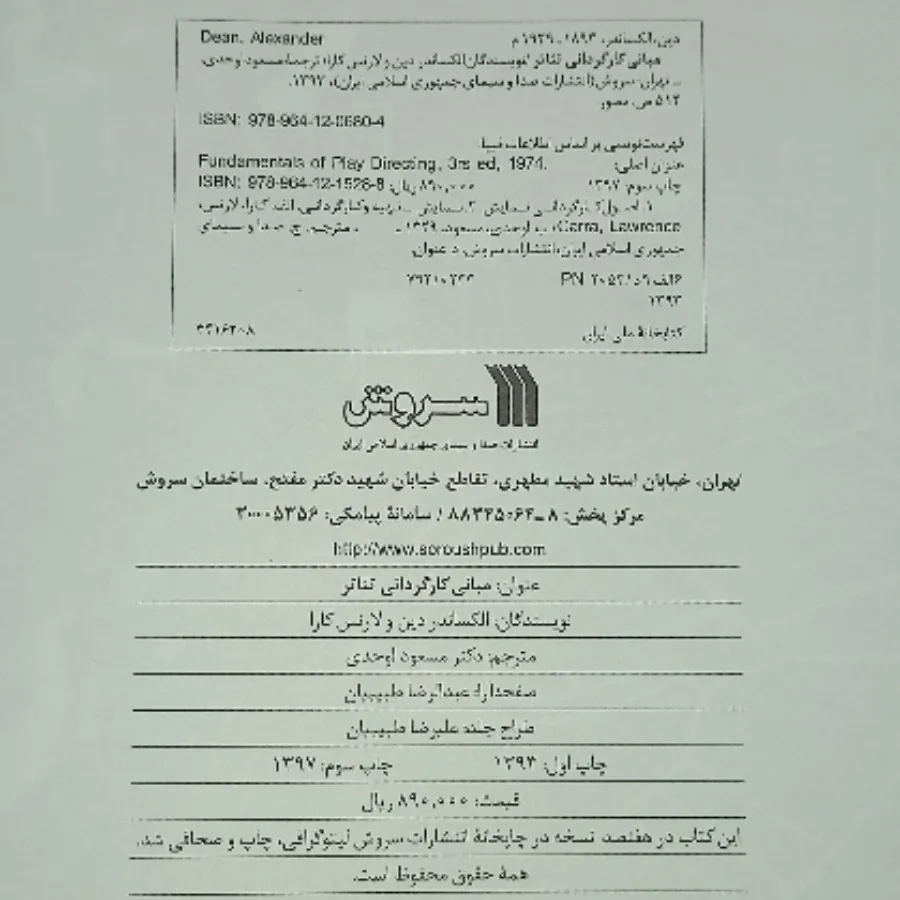 Dean, Alexander
دین، الکساندر، ۱۸۹۳ـ۱۹۳۹ م
مبانی کارگردانی تئاتر / نویسندگان الکساندر دین و لارنس کارا؛ ترجمه مسعود اوحدی.
ـ تهران: سروش (انتشارات صدا و سیمای جمهوری اسلامی ایران)، ۱۳۹۳.
۵۱۲ ص. مصور.
ISBN: 978-964-12-0680-4
فهرست‌نویسی بر اساس اطلاعات فیپا.
عنوان اصلی: Fundamentals of Play Directing, 3rs ed, 1974.
چاپ سوم: ۱۳۹۷ ۸۹۰,۰۰۰ ریال: ISBN: 978-964-12-1528-8
۱. کارگردانی نمایش. ۲. نمایش ـ و کارگردانی. الف. کارا، لارنس،
Carra, Lawrence ب. اوحدی، مسعود، ۱۳۲۹ ـ ، مترجم. ج. صدا و سیمای
جمهوری اسلامی ایران، انتشارات سروش. د. عنوان.
PN
۱۳۹۳
کتابخانهٔ ملی ایران
سروش
انتشارات صدا و سیمای جمهوری اسلامی ایران
تهران، خیابان استاد شهید مطهری، تقاطع خیابان شهید دکتر مفتح، ساختمان سروش
مرکز پخش: ۸ ـ ۸۸۳۴۵۰۶۴ / سامانهٔ پیامکی: ۳۰۰۰۵۳۵۶
http://www.soroushpub.com
عنوان: مبانی کارگردانی تئاتر
نویسندگان: الکساندر دین و لارنس کارا
مترجم: دکتر مسعود اوحدی
صفحه‌آرا: عبدالرضا طبیبیان
طراح جلد: علیرضا طبیبیان
چاپ اول: ۱۳۹۳ چاپ سوم: ۱۳۹۷
قیمت: ۸۹۰,۰۰۰ ریال
این کتاب در هفتصد نسخه در چاپخانهٔ انتشارات سروش لیتوگرافی، چاپ و صحافی شد.
همهٔ حقوق محفوظ است.